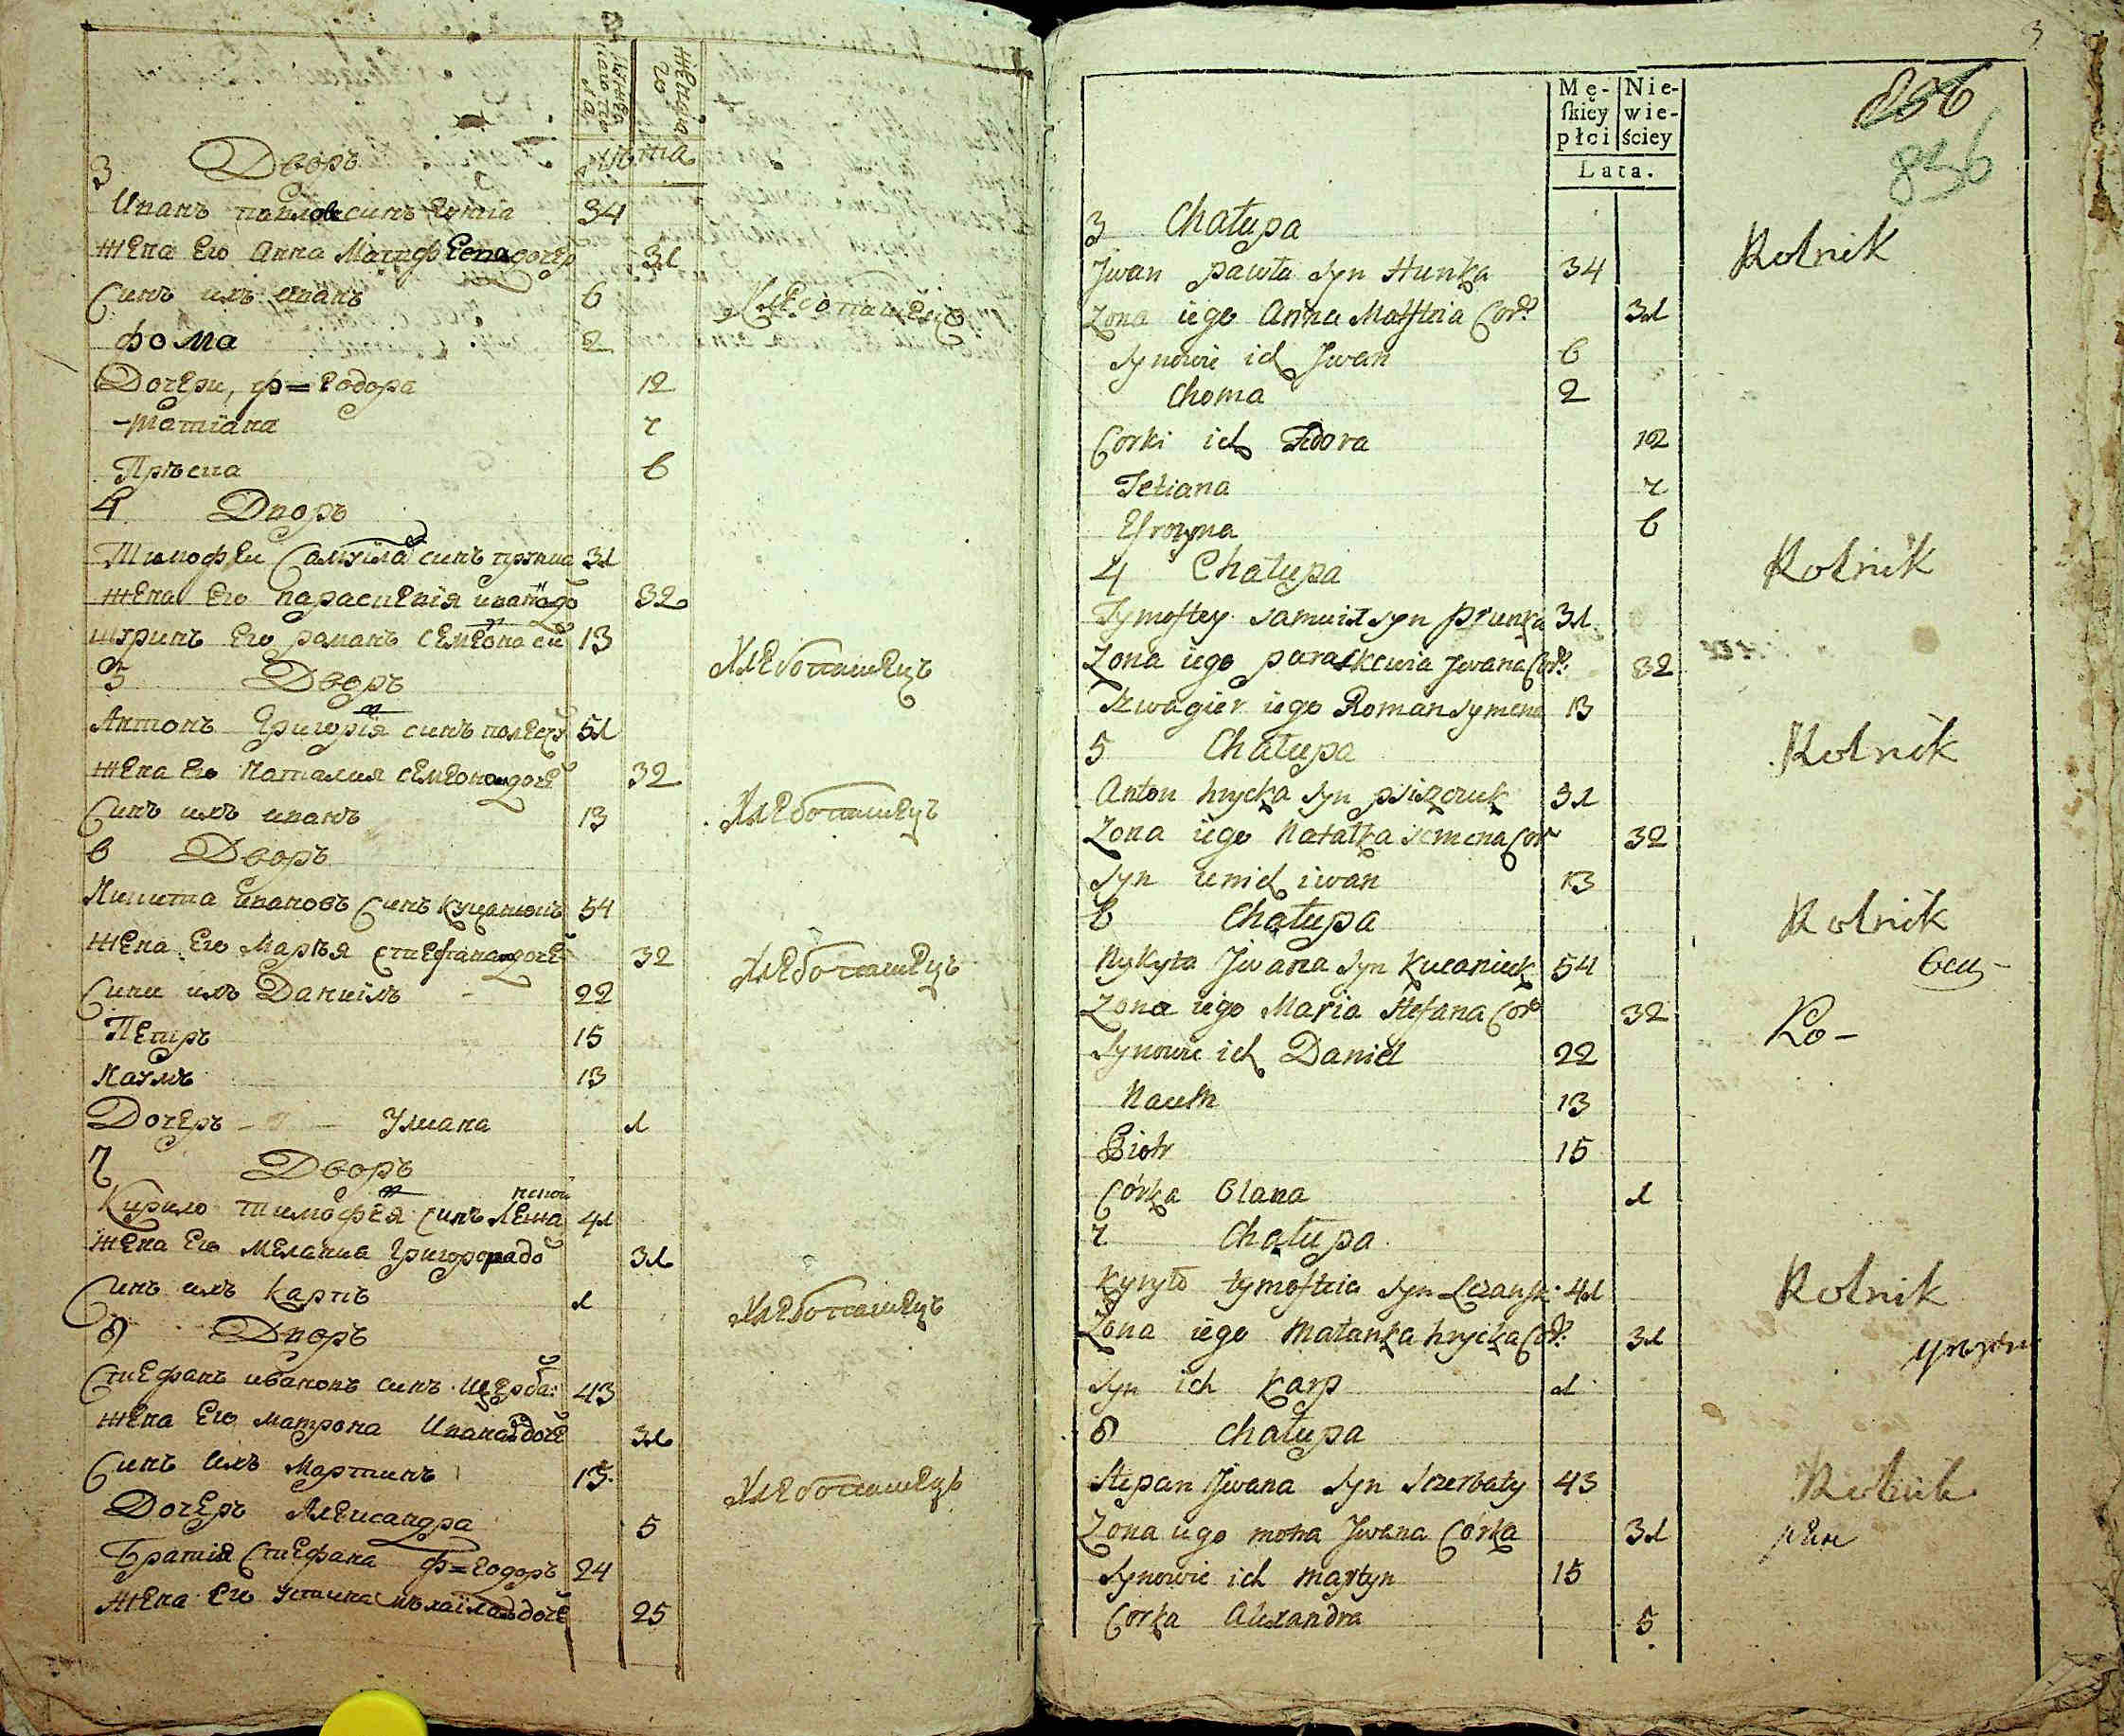 Мужеска
Женска
Лѣта
3 Дворъ
Иванъ павловъ синъ гунка 34
жена Его Анна Матфѣева дочер 31
Синъ ихъ иванъ 6
фома 2
Дочери, ф=еодора 12
татiана 7
6
4 Дворъ
Тимофеи Самуила синъ 31
жена Его параскевiя ивана до 32
шуринъ Его романъ семеона си 13
5 Дворъ
Антонъ Григорiя синъ 51
жена Его наталия семеона доче 32
Синъ ихъ иванъ 13
6 Дворъ
Никита ивановъ Синъ куцанюкъ 54
жена Его Марѣя стефана доче 32
Сини ихъ Данiилъ 22
Петръ 15
Наумъ 13
Дочеръ Улиана 1
7 Дворъ
Кирило тимофея синъ 41
жена Его мелания Григора до 31
Синъ ихъ Карпъ 1
8 Дворъ
Стефанъ ивановъ синъ щерба: 43
жена Его матрона Ивана доче 31
Синъ ихъ Мартинъ 15
Дочеръ Александра 5
Братiя Стефана ф=еодоръ 24
Жена Его Устина михаiла доче 25
Хлебопашецъ
Хлебопашецъ
Хлебопашецъ
Хлебопашецъ
Хлебопашецъ
Хлебопашецъ
3
836
Mę-
ſkiey
płci
Nie-
wie-
ściey
Lata.
3 Chałupa
Jwan pawła syn Hunka 34 Rolnik
Zona iego Anna Matfteia Cor: 31
Synowie ich Jwan 6
Choma 2
Corki ich Fedora 12
Tetiana 7
Efrozyna 6
4 Chałupa Rolnik
Tymoftey samuiła syn prunka 31
Zona iego paraſkewia Jwana Cor: 32
Szwagier iego Roman Symena 13
5 Chałupa Rolnik
Anton hrycka syn 31
Zona iego Natałka semena Cor 32
Syn ich iwan 13
6 Chałupa Rolnik
Nykyta Jwana syn Kucaniuk 54
Zona iego Maria Stefana Cor 32
Synowie ich Daniel 22 Ro-
Naum 13
Piotr 15
Córka Olana 1
7 Chałupa
Kyryło tymofteia syn 41 Rolnik
Zona iego Małanka hrycka Cor: 31
Syn ich Karp 1
8 Chałupa
Stepan Jwana syn Szerbaty 43 Rolnik
Zona iego motra Jwana Córka 31
Synowie ich martyn 15
Corka Alexandra 5